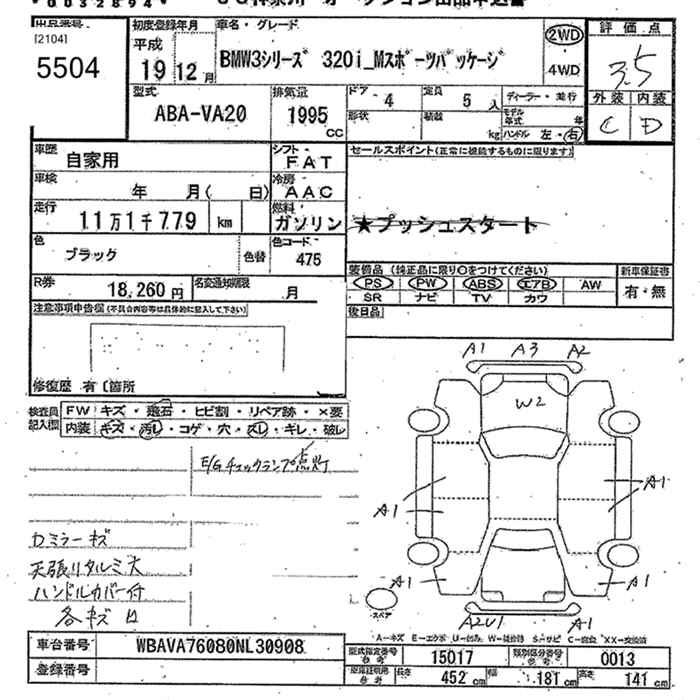 0032894
[2104]
5504
初度登録年月
平成
19年12月
車名・グレード
BMW3シリーズ 320i_Mスポーツパッケージ
2WD
4WD
評価点
3.5
外装 内装
C D
型式
ABA-VA20
排気量
1995 CC
ドア 4
定員 5 人
形状
積載 kg
ディーラー・並行
モデル年式 年
ハンドル 左・右
車歴
自家用
シフト
FAT
セールスポイント(正常に機能するものに限ります)
車検
年 月( 日)
冷房
AAC
走行
11万1千779 km
燃料
ガソリン
★プッシュスタート
色
ブラック
色替
色コード
475
装備品(純正品に限り○をつけてください)
新車保証書
PS PW ABS エアB AW
有・無
SR ナビ TV カワ
R券
18,260円
名変通知期限
月
後日品
注意事項申告欄(不具合内容等は具体的に記入して下さい)
修復歴 有〔箇所
検査員記入欄
FW キズ・飛石・ヒビ割・リペア跡・×要
内装 キズ・汚レ・コゲ・穴・スレ・キレ・破レ
E/Gチェックランプ点灯
カミラーキズ
天張りタルミ大
ハンドルカバー付
各キズ
A1 A3 A2
W2
A1 A1
A1 A1
A2U1 A1
スペア
A-キズ E-エクボ U-凹み W-補修跡 S-サビ C-腐食 XX-交換済
車台番号
WBAVA76080NL30908
登録番号
型式指定番号
参考
15017
類別区分番号
参考
0013
参考
長さ 452 cm
幅 181 cm
高さ 141 cm